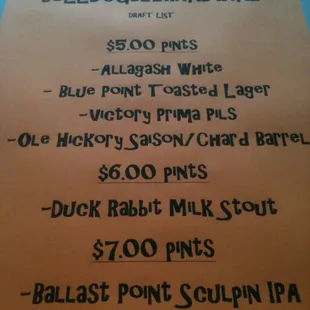 DRAFT LIST
$5.00 PINTS
-Allagash White
- Blue Point Toasted Lager
-Victory Prima Pils
-Ole Hickory Saison/Chard Barrel
$6.00 PINTS
-Duck Rabbit Milk Stout
$7.00 PINTS
-Ballast Point Sculpin IPA